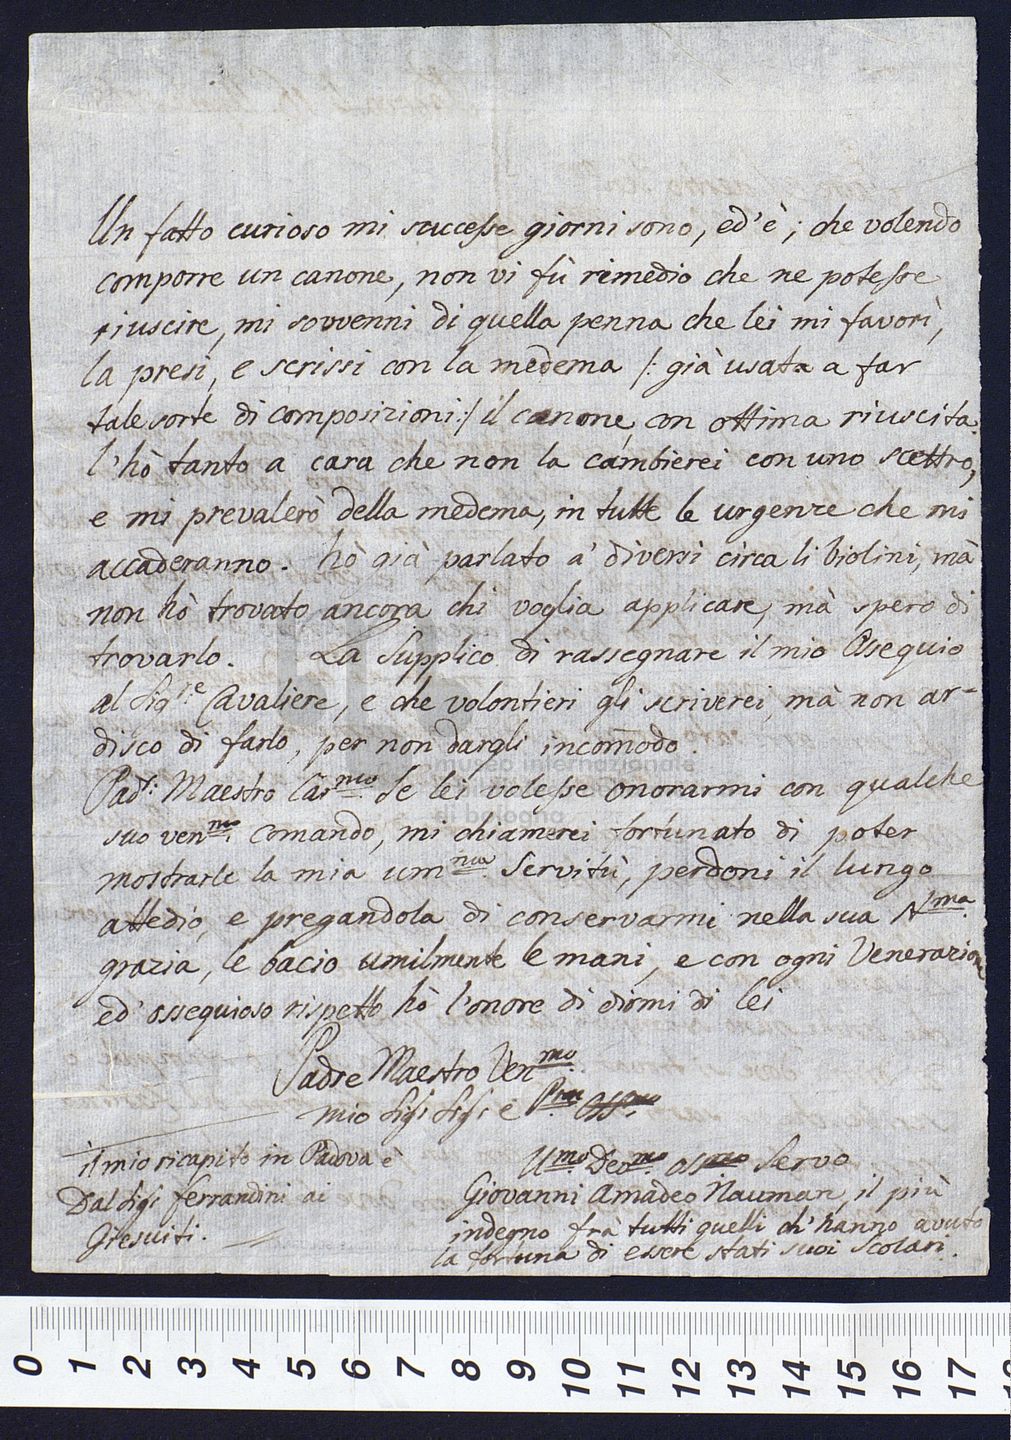 Un fatto curioso mi successe giorni sono, ed' è; che volendo
comporre un canone, non vi fù rimedio che ne potesse
riuscire, mi sovvenni di quella penna che lei mi favorì,
la presi, e scrissi con la medema /: già usata a far
tale sorte di composizioni:/ il canone, con ottima riuscita.
l'hò tanto a cara che non la cambierei con uno scettro,
e mi prevalerò della medema, in tutte le urgenze che mi
accaderanno. hò già parlato a' diversi circa li biolini, mà
non hò trovato ancora chi voglia applicare, mà spero di
trovarlo. La Supplico di rassegnare il mio Osequio
al Sigre Cavaliere, e che volontieri gli scriverei, mà non ar-
disco di farlo, per non dargli incom̅odo.
Pad: Maestro Carmo. Se lei volesse onorarmi con qualche
suo venmo. Comando, mi chiamerei fortunato di poter
mostrarle la mia umma. Servitù, perdoni il lungo
attedio, e pregandola di conservarmi nella sua
grazia, le bacio umilmente le mani, e con ogni Venerazione
ed' ossequioso rispetto hò l'onore di dirmi di lei
Padre Maestro Venmo.
mio Sigi Sigi e Pne ossmo
il mio ricapito in Padova è
Dal Sigi ferrandini ai
Giesuiti.
Umo. Devmo. ossmo Servo
Giovanni Amadeo Nauman, il più
indegno frà tutti quelli ch' hanno avuto
la fortuna di essere stati suoi Scolari.
museo internazionale
di bologna
0 1 2 3 4 5 6 7 8 9 10 11 12 13 14 15 16 17